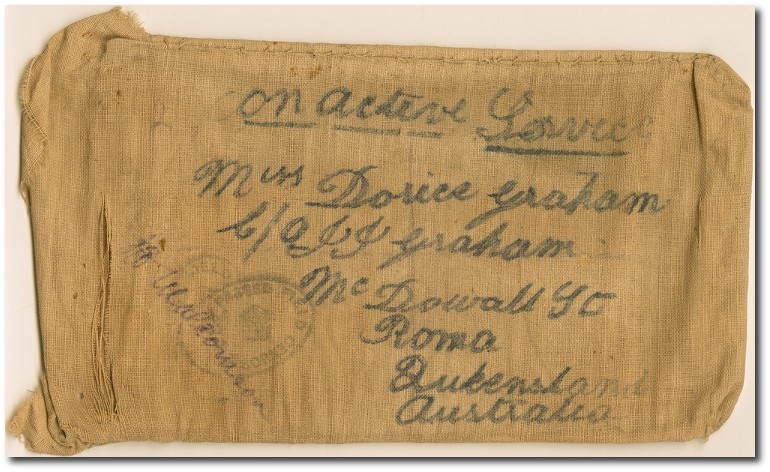 on active Service
Miss Dorice Graham
C/o J J Graham
McDowall St
Roma
Qukensland
Australia